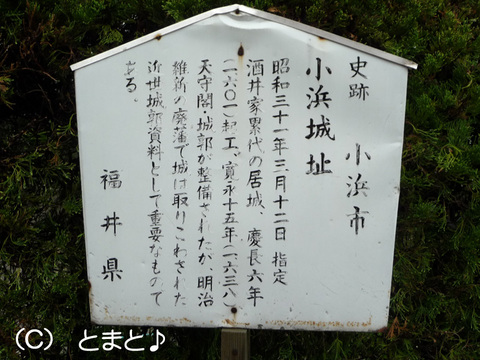 史跡 小浜市
小浜城址
昭和三十一年三月十二日 指定
酒井家累代の居城、慶長六年
(一六〇一)起工、寛永十五年(一六三八)
天守閣・城郭が整備されたが、明治
維新の廃藩で城は取りこわされた
近世城郭資料として重要なもので
ある。
福井県
(C) とまと♪